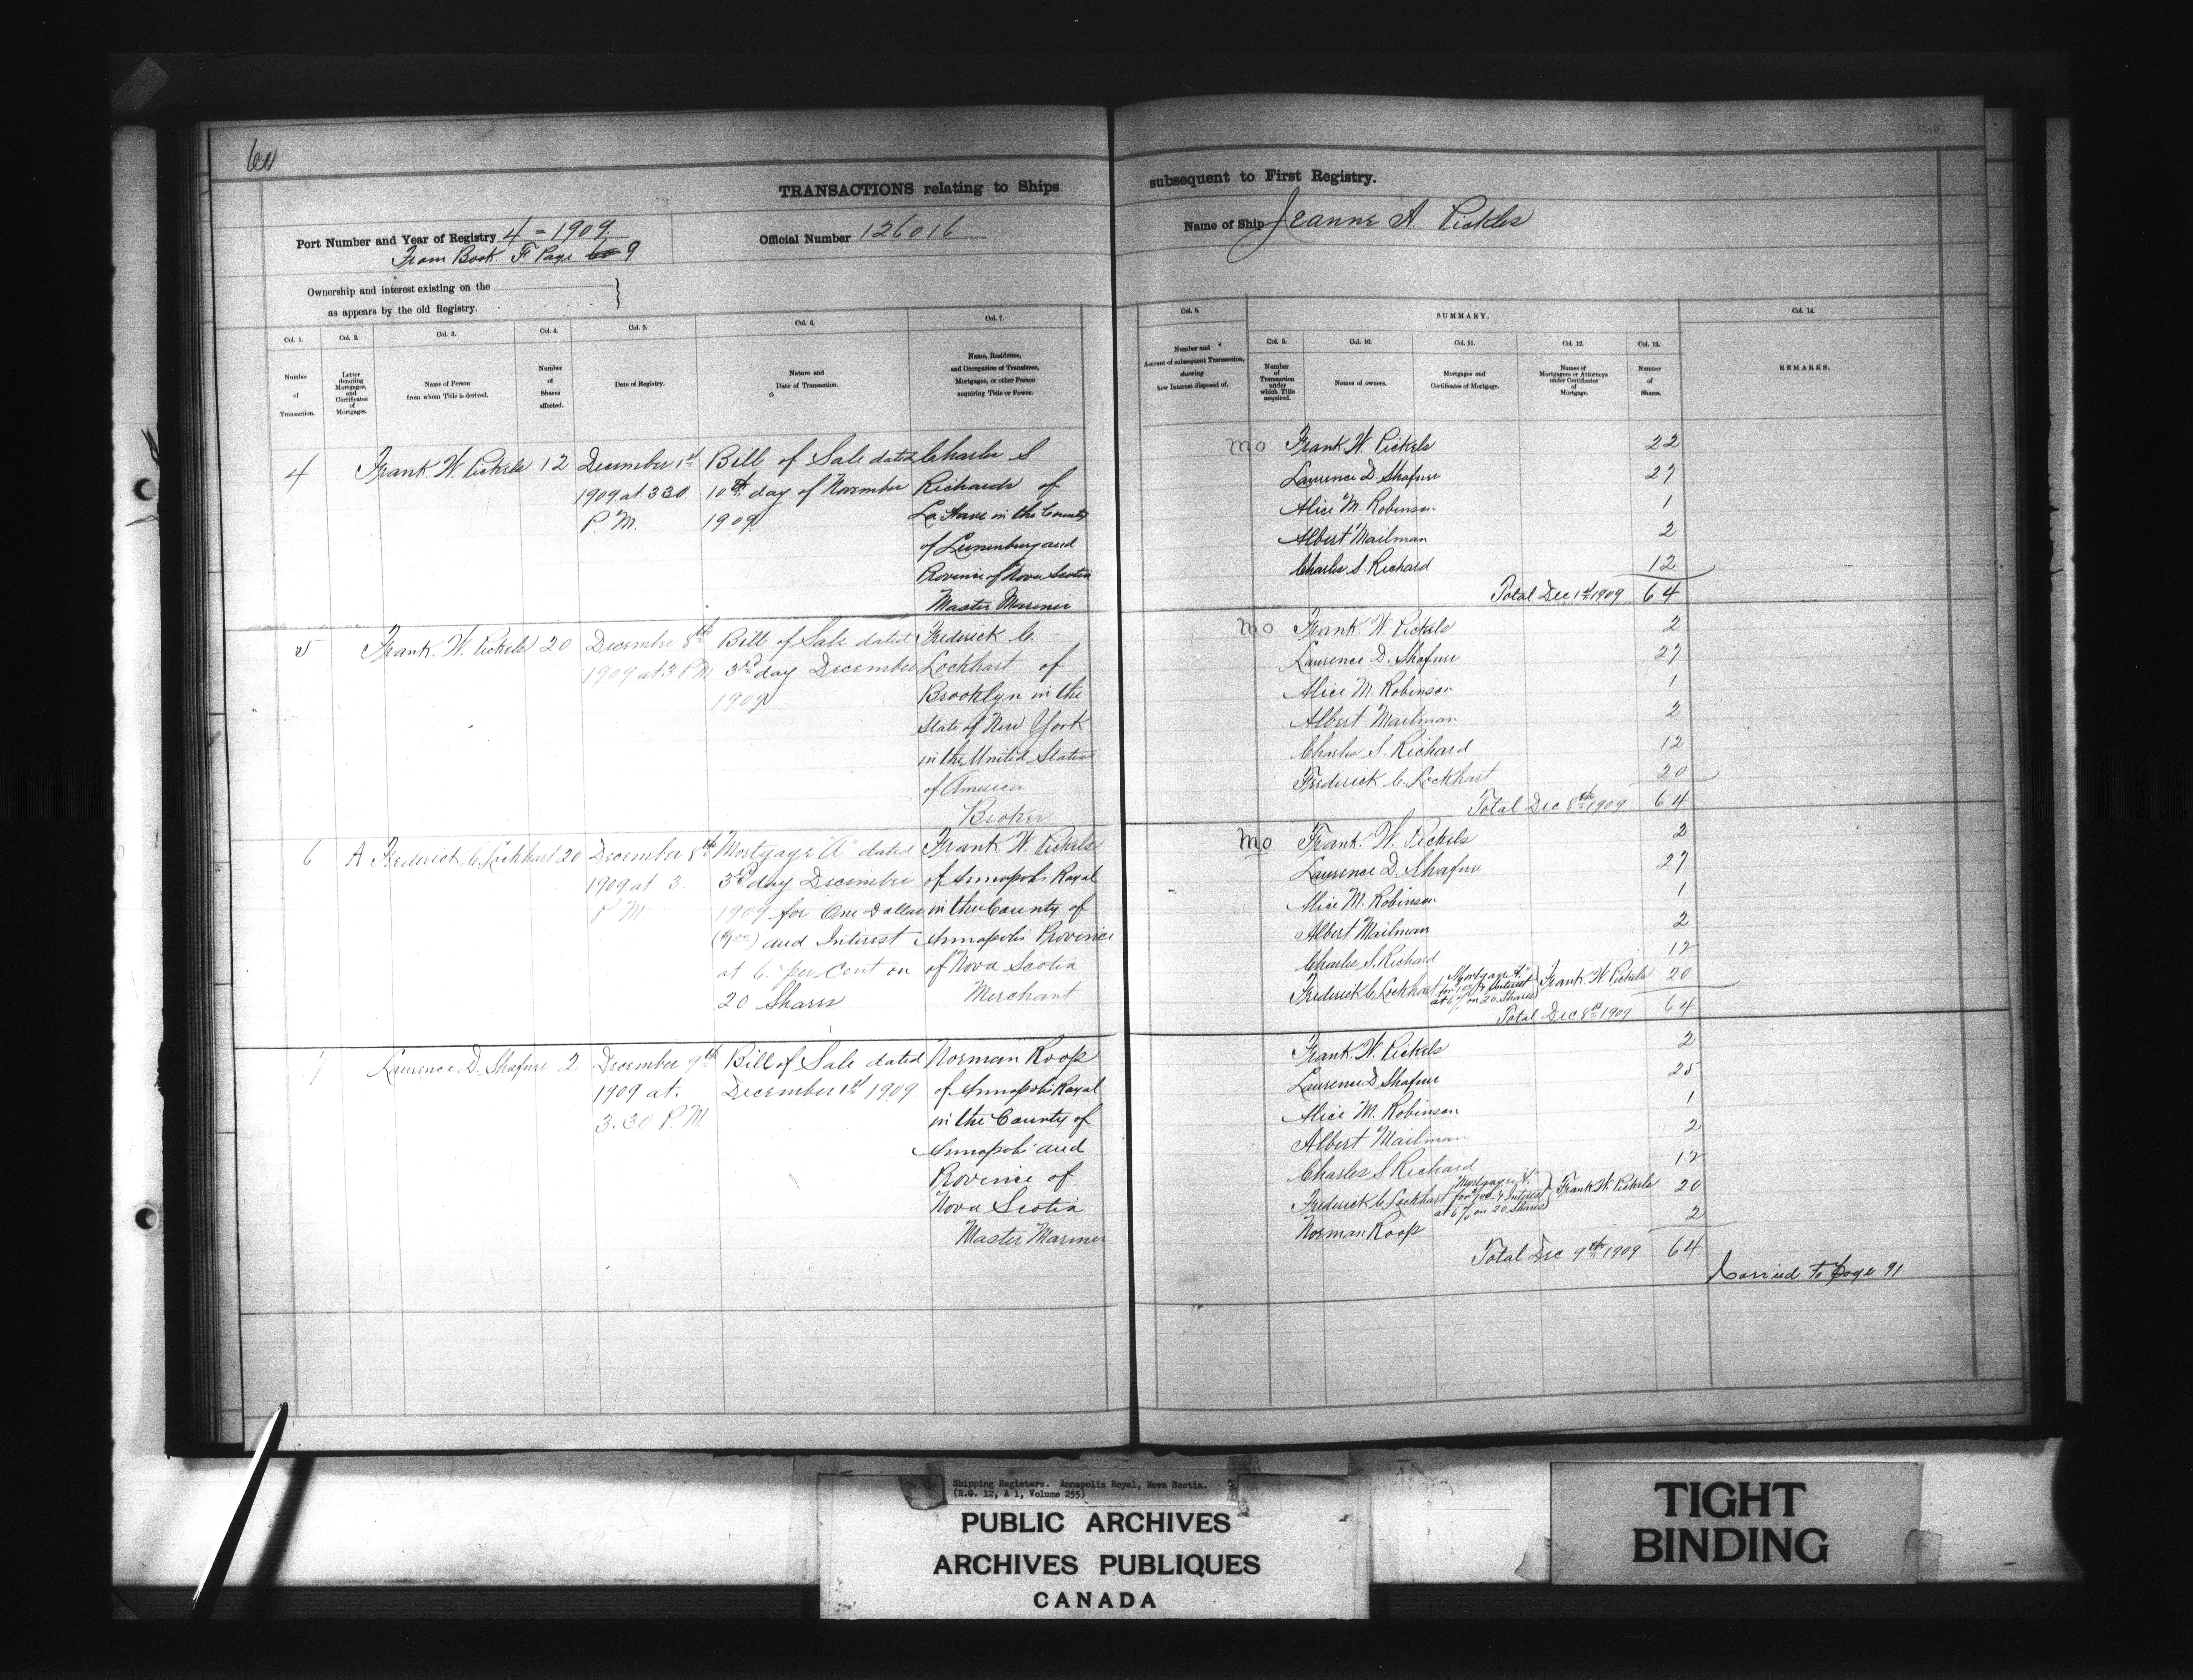 60
TRANSACTIONS relating to Ships subsequent to First Registry.
Port Number and Year of Registry 4 = 1909.
From Book. F. Page 60 9
Official Number 126016
Name of Ship Jeanne A. Pickels
Ownership and interest existing on the
as appears by the old Registry.
Col. 1.
Number
of
Transaction.
Col. 2.
Letter
denoting
Mortgages,
and
Certificates
of
Mortgages.
Col. 3.
Name of Person
from whom Title is derived.
Col. 4.
Number
of
Shares
affected.
Col. 5.
Date of Registry.
Col. 6.
Nature and
Date of Transaction.
Col. 7.
Name, Residence,
and Occupation of Transferee,
Mortgagee, or other Person
acquiring Title or Power.
Col. 8.
Number and
Amount of subsequent Transaction,
showing
how Interest disposed of.
SUMMARY.
Col. 9.
Number
of
Transaction
under
which Title
acquired.
Col. 10.
Names of owners.
Col. 11.
Mortgages and
Certificates of Mortgage.
Col. 12.
Names of
Mortgagees or Attorneys
under Certificates
of
Mortgage.
Col. 13.
Number
of
Shares.
Col. 14.
REMARKS.
4
Frank W. Pickels
12
December 1st
1909 at 3 30
P. M.
Bill of Sale dated
10th day of November
1909
Charles S
Richards of
La Have in the County
of Lunenburg and
Province of Nova Scotia
Master Mariner
mo
Frank W. Pickels 22
Laurence D. Shafner 27
Alice M. Robinson 1
Albert Mailman 2
Charles S. Richard 12
Total Dec 1st 1909 64
5
Frank. W. Pickels
20
December 8th
1909 at 3 P M
Bill of Sale dated
3rd day December
1909
Frederick C.
Lockhart of
Brooklyn in the
State of New York
in the United States
of America
Broker
mo
Frank. W. Pickels 2
Laurence D. Shafner 27
Alice M. Robinson 1
Albert Mailman 2
Charles S. Richard 12
Frederick C. Lockhart 20
Total Dec 8th 1909 64
6
A
Frederick C. Lockhart
20
December 8th
1909 at 3.
P M
Mortgage "A" dated
3rd day December
1909 for One Dollar
($1.00) and Interest
at 6. per cent on
20 Shares
Frank W. Pickels
of Annapolis Royal
in the County of
Annapolis Province
of Nova Scotia
Merchant
mo
Frank. W. Pickels 2
Laurence D. Shafner 27
Alice M. Robinson 1
Albert Mailman 2
Charles S. Richard 12
Frederick C. Lockhart Mortgage "A" for 1.00 & Interest at 6% on 20 Shares Frank W Pickels 20
Total Dec 8th 1909 64
7
Laurence D. Shafner
2
December 9th
1909 at.
3.30 P. M.
Bill of Sale dated
December 1st 1909
Norman Roop
of Annapolis Royal
in the County of
Annapolis and
Province of
Nova Scotia
Master Mariner
Frank. W. Pickels 2
Laurence D Shafner 25
Alice M. Robinson 1
Albert Mailman 2
Charles S Richard 12
Frederick C Lockhart Mortgage "A" for 1.00 & Interest at 6% on 20 Shares Frank W. Pickels 20
Norman Roop 2
Total Dec 9th 1909 64
Carried To Page 91
Shipping Registers. Annapolis Royal, Nova Scotia.
(R.G. 12, A 1, Volume 255)
PUBLIC ARCHIVES
ARCHIVES PUBLIQUES
CANADA
TIGHT
BINDING